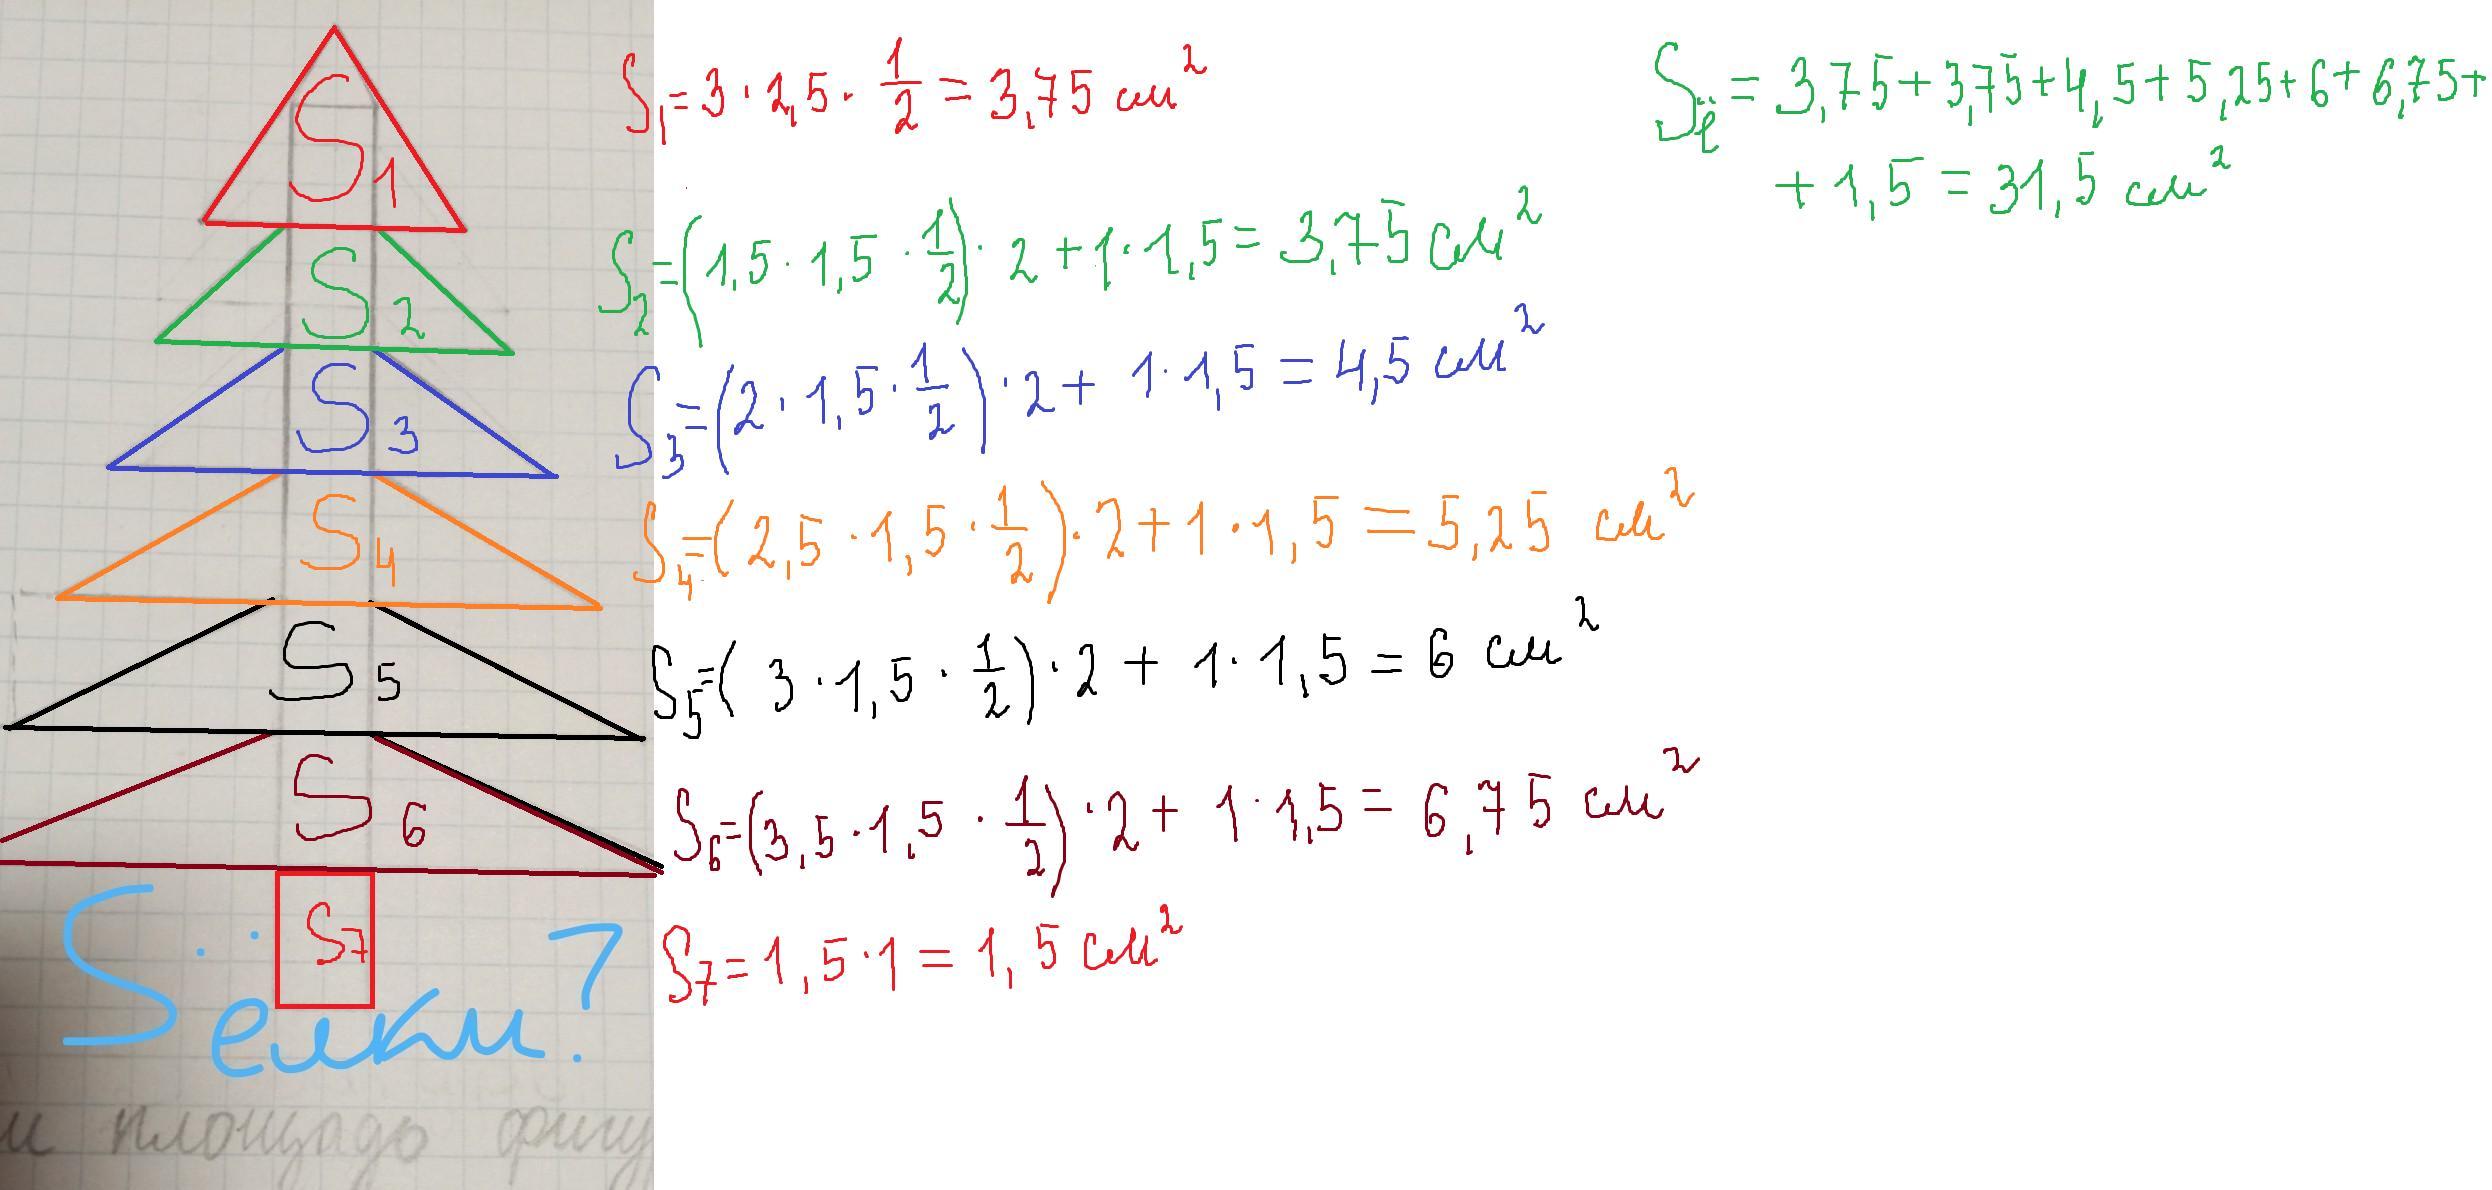 S1
S2
S3
S4
S5
S6
S7
Sёлки?
и площадь фигу
S1 = 3 · 2,5 · 1/2 = 3,75 см²
S2 = (1,5 · 1,5 · 1/2) · 2 + 1 · 1,5 = 3,75 см²
S3 = (2 · 1,5 · 1/2) · 2 + 1 · 1,5 = 4,5 см²
S4 = (2,5 · 1,5 · 1/2) · 2 + 1 · 1,5 = 5,25 см²
S5 = (3 · 1,5 · 1/2) · 2 + 1 · 1,5 = 6 см²
S6 = (3,5 · 1,5 · 1/2) · 2 + 1 · 1,5 = 6,75 см²
S7 = 1,5 · 1 = 1,5 см²
Sё = 3,75 + 3,75 + 4,5 + 5,25 + 6 + 6,75 +
+ 1,5 = 31,5 см²